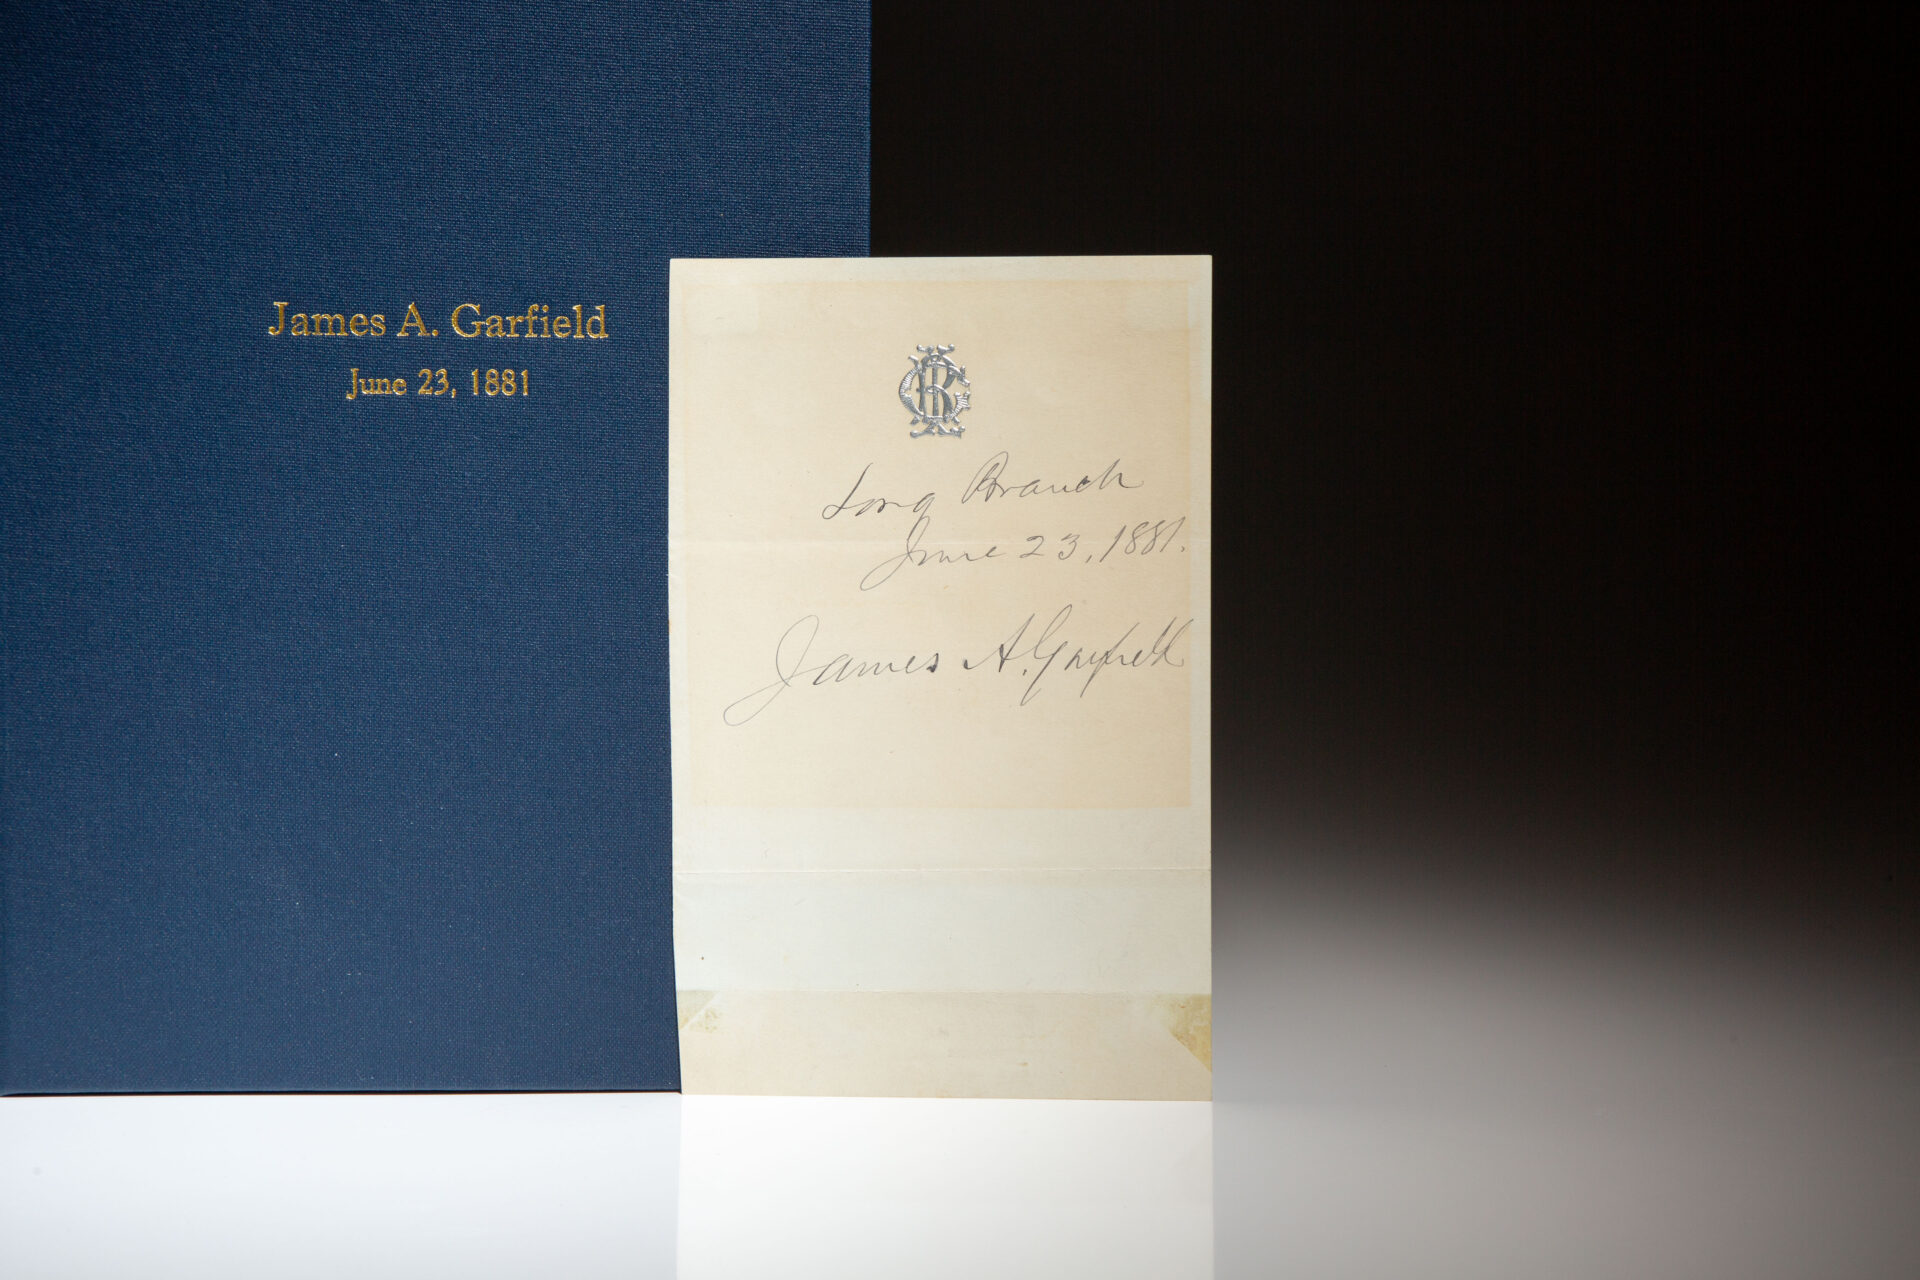 James A. Garfield
June 23, 1881
Long Branch
June 23, 1881.
James A. Garfield